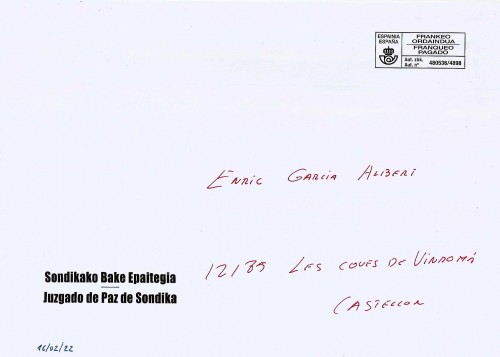 ESPAINIA
ESPAÑA
FRANKEO
ORDAINDUA
FRANQUEO
PAGADO
Aut. zbk.
Aut. nº
480536/4898
ENRIC GARCIA ALIBERI
12189 LES COVES DE VINROMÁ
CASTELLON
Sondikako Bake Epaitegia
Juzgado de Paz de Sondika
16/02/22